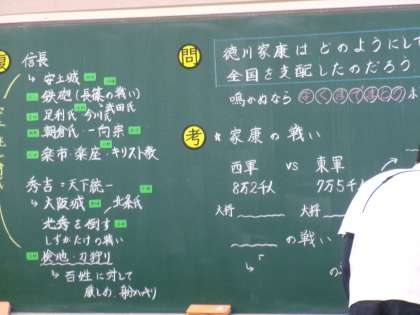 復
信長
↳安土城
鉄砲(長篠の戦い)
足利氏・今川氏 武田氏
朝倉氏・一向宗
楽市・楽座・キリスト教
秀吉=天下統一
↳大阪城 北条氏
光秀を倒す
しずがたけの戦い
検地・刀狩り
↳百姓に対して
厳しめ
問
徳川家康はどのようにして
全国を支配したのだろう
鳴かぬなら
考
家康の戦い
西軍 vs 東軍
8万2千人 7万5千人
大将 大将
の戦い
の